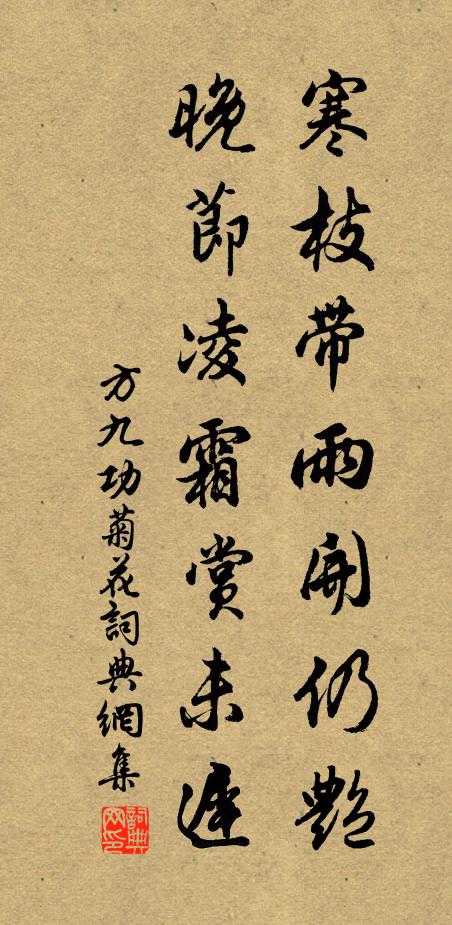 寒枝带雨開仍艶
晚節凌霜賞未遲
方九功菊花詞典網集
詞典网印